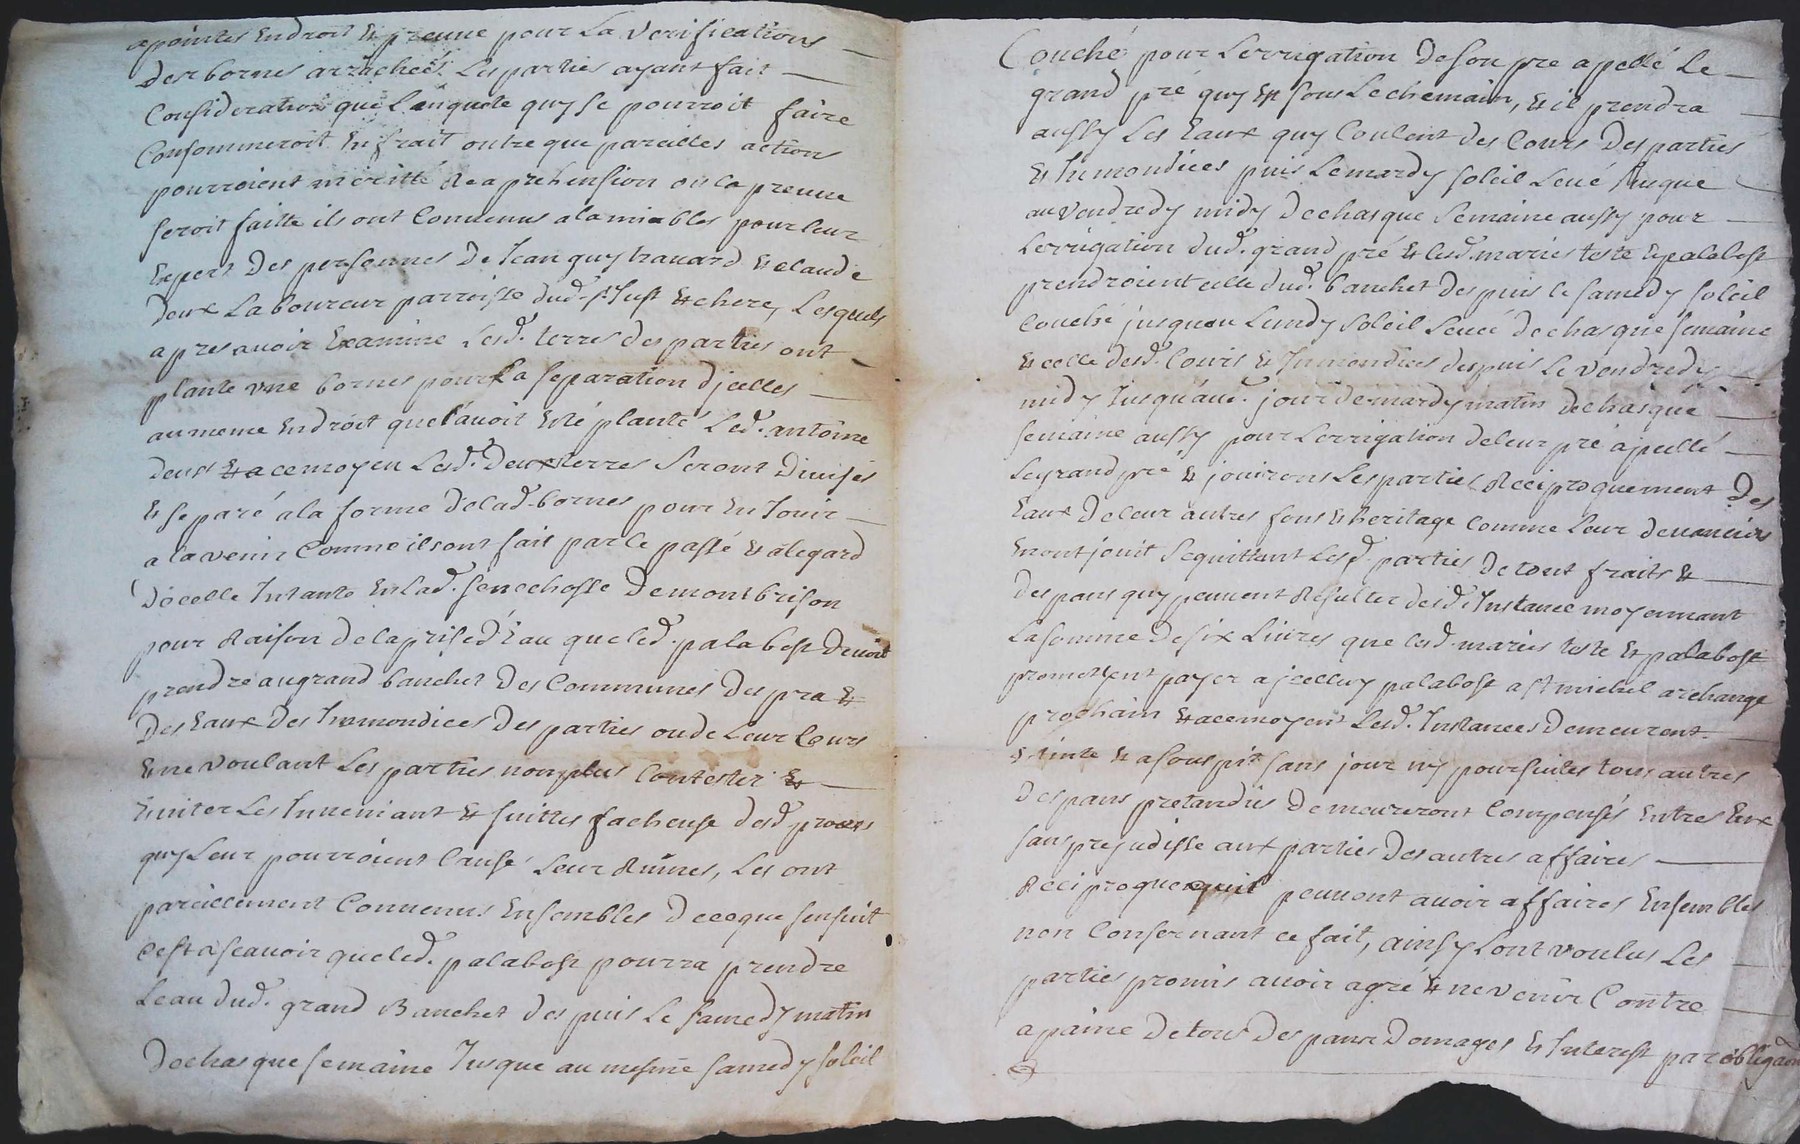 apointes En droit Et preuve pour La Verifications
des bornes arrachées. Les parties ayant fait
Consideration que Lenquete quy se pourroit faire
Consommeroit En frait outre que pareilles actions
pourroient meritté Reaprehension ou la preuve
seroit faitte ils ont Convenus alamiables pour leur
Expert des personnes de Jean guy travard Et claude
deux Laboureur parroisse dud. st Just Et chere, Lesquels
apres avoir Examiné Lesd. terres des parties ont
planté une bornes pour La separation djcelles
au meme Endroit quel avoit Eté planté Led. antoine
deux Et ace moyen Lesd. deux terres seront divisés
Et separé ala forme de lad. bornes pour En Jouir
a lavenir Comme ils ont fait par le passé Et alegard
décelle Instante En Lad. senechosse de montbrison
pour Raison de la prise d'Eau que led. palabost devoit
prendre au grand banchet des Communes des pra Et
des Eaux des Inmondices des parties ou de Leur Cours
Et ne voulant Les parties nonplus Contester Et
Eviter Les Inveniant Et suittes facheuse desd. proces
quy Leur pourroient Causé Leur Ruines, Les ont
pareillement Convenus Ensembles de ce que sensuit
Cest ascavoir que led. palabost pourra prendre
Leau dud. grand Banchet des puis Le samedy matin
de chasque semaine Jusque au mesme samedy soleil
Couché pour Lerrigation de son pre apellé Le
grand pré quy Est sous Le chemain, Et il prendra
aussy Les Eaux quy Coulent des Cours des parties
Et Inmondices puis Le mardy soleil Levé Jusque
au vendredy midy de chasque semaine aussy pour
Lerrigation dud. grand pré Et Lesd. mariés teste Et palabost
prendroient celle dud. banchet des puis le samedy soleil
Couché jusquau Lundy soleil Levé de chasque semaine
Et celle desd. Cours Et Inmondices des puis Le vendredy
midy Jusquaud. jour de mardy matin de chasque
semaine aussy pour Lerrigation de leur pré apellé
Le grand pre Et jouirons Les parties Reciproquement des
Eaux de leur autres fons Et heritage Comme Leur devanciers
En ont jouit se quittant Lesd. parties de tout fraits Et
des pans quy peuvent Résulter desd. Instance moyennant
La somme de six Livres que lesd. mariés teste Et palabost
promettent payer ajcelluy palabost a st michel archange
prochain Et ace moyen Lesd. Instances demeurent
Etinte Et asoupit sans jour ny poursuites tous autres
despans pretandus demeureront Compensés Entres Eux
sans prejudisse aux parties des autres affaires
Reciproque quil peuvont avoir affaires Ensembles
non Consernant ce fait, ainsy Lont voulus Les
parties promis avoir agré Et ne venir Contre
a paine de tous des pans Domages Et Interest par obligation